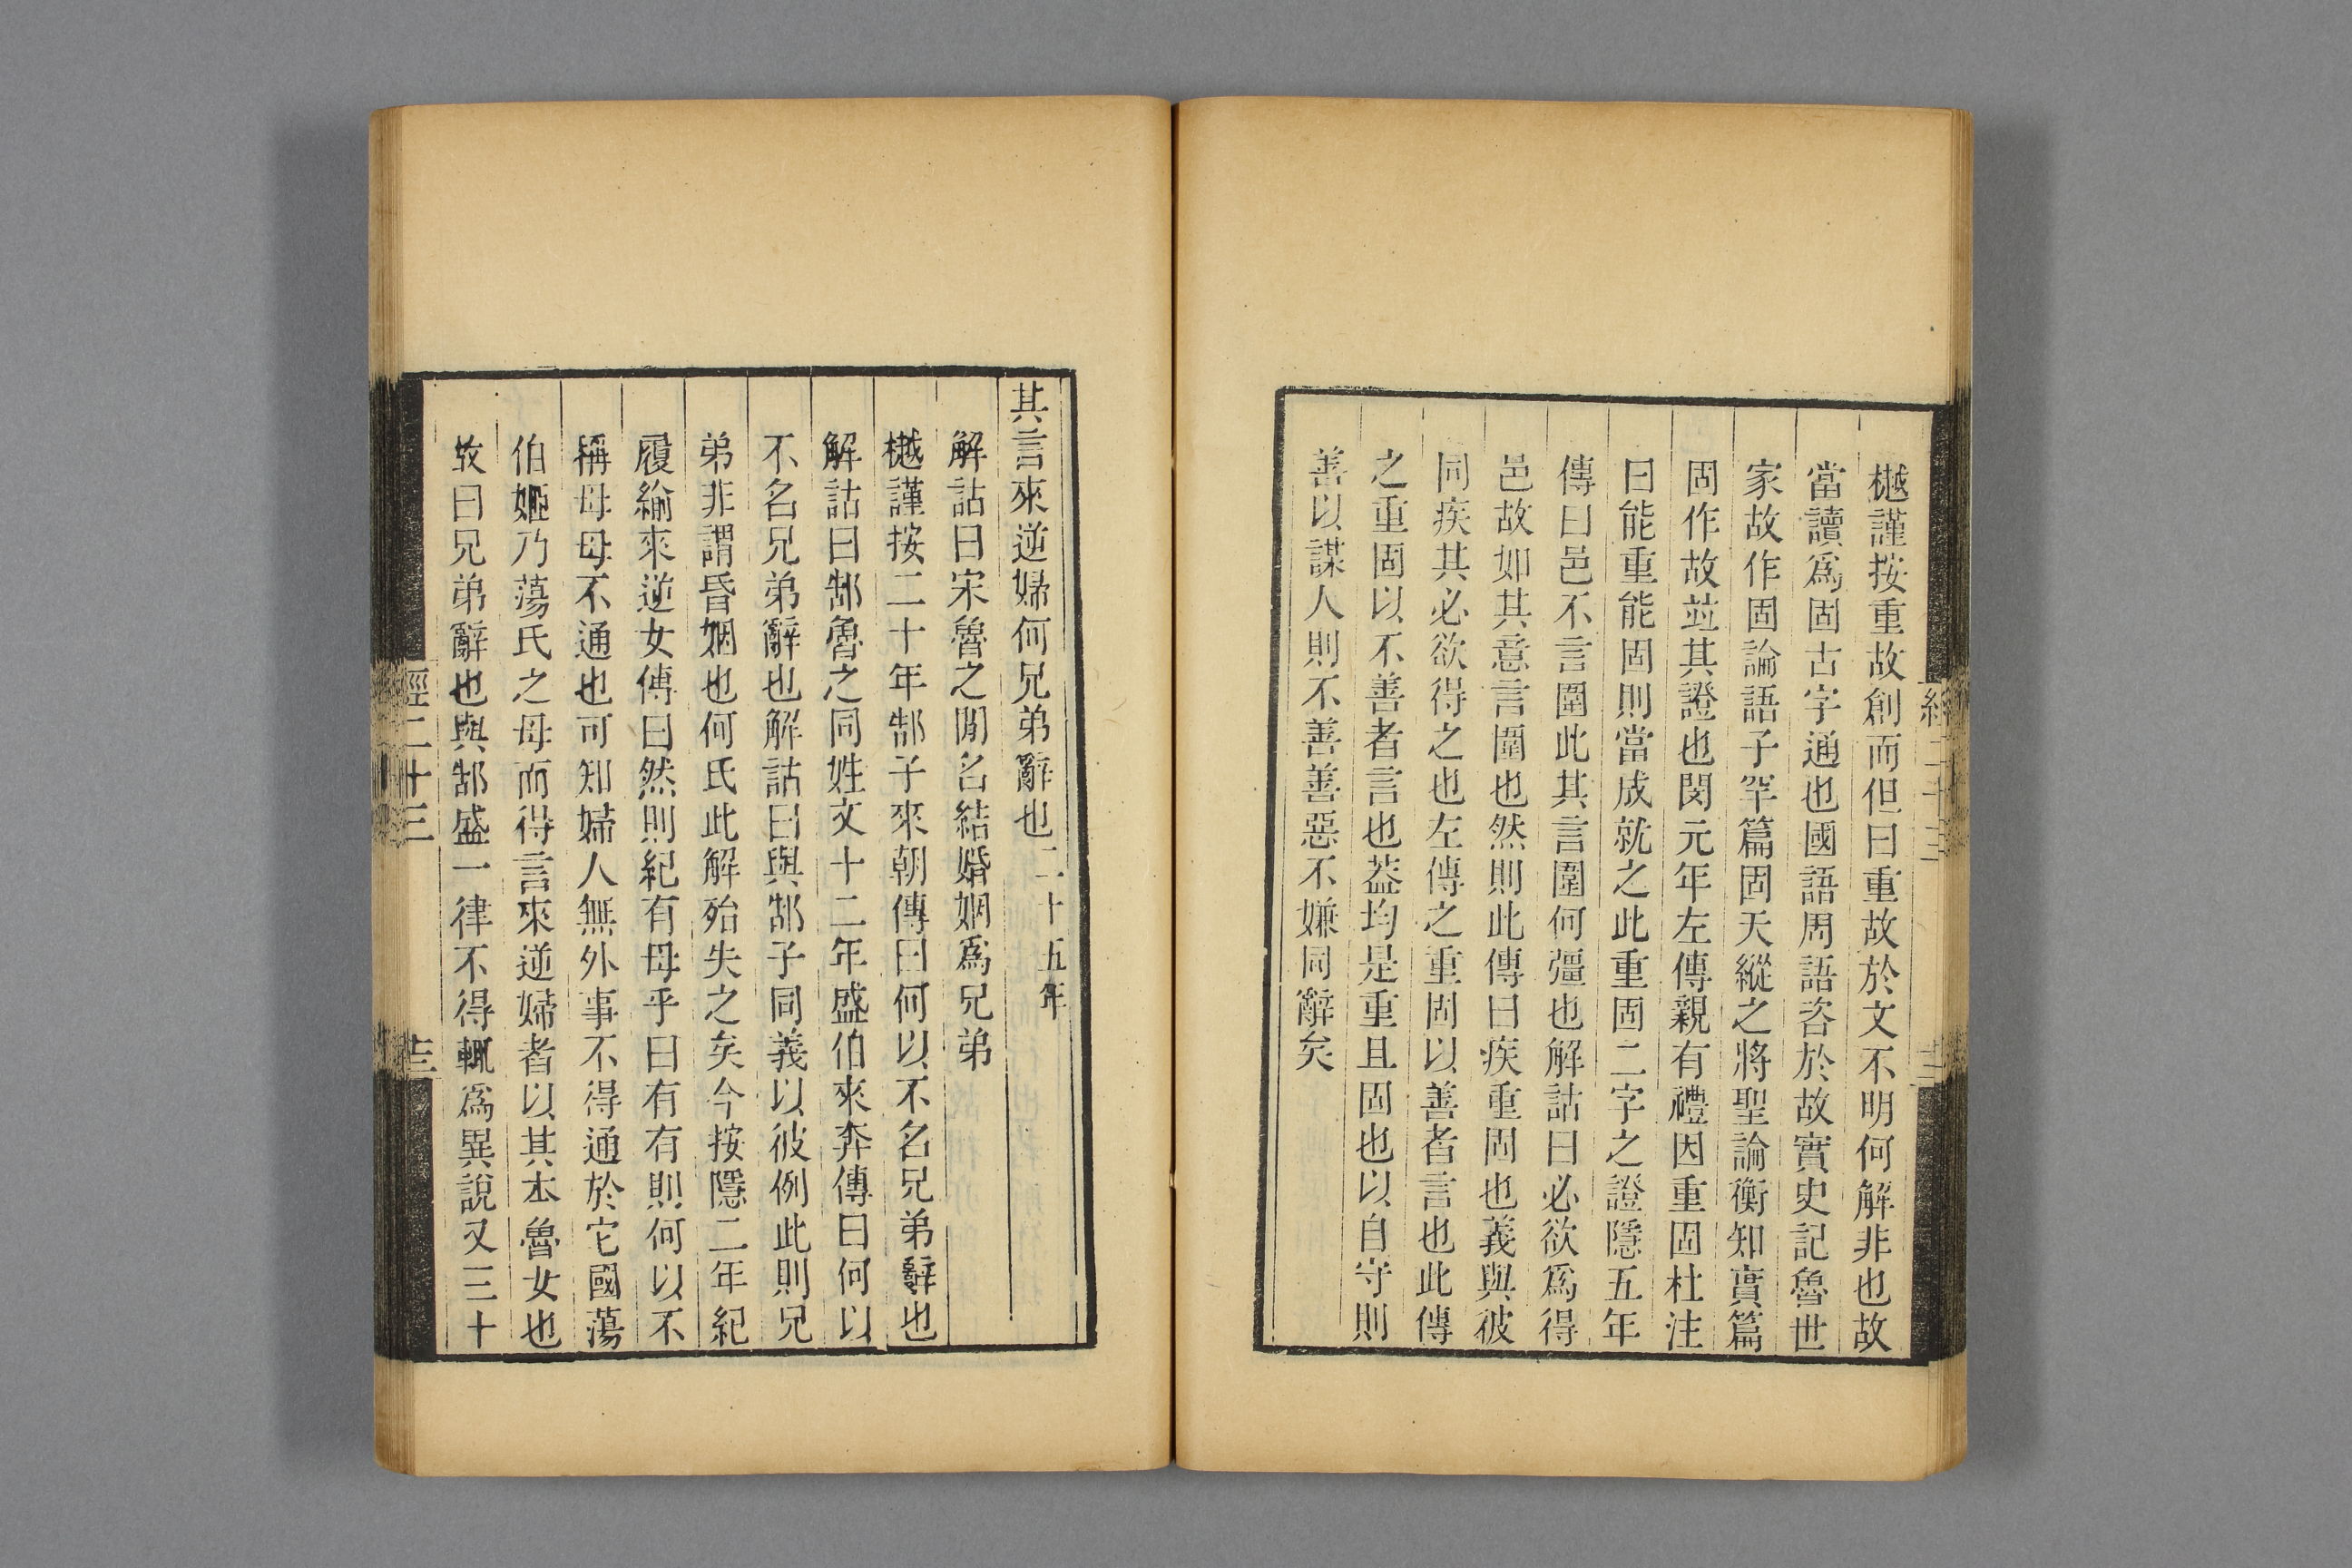 樾謹按重故創而但曰重故於文不明何解非也故
當讀爲固古字通也國語周語咨於故實史記魯世
家故作固論語子罕篇固天縱之將聖論衡知實篇
固作故竝其證也閔元年左傳親有禮因重固杜注
曰能重能固則當成就之此重固二字之證隱五年
傳曰邑不言圍此其言圍何彊也解詁曰必欲爲得
邑故如其意言圍也然則此傳曰疾重固也義與彼
同疾其必欲得之也左傳之重固以善者言也此傳
之重固以不善者言也葢均是重且固也以自守則
善以謀人則不善善惡不嫌同辭矣
其言來逆婦何兄弟辭也二十五年
解詁曰宋魯之閒名結婚姻爲兄弟
樾謹按二十年郜子來朝傳曰何以不名兄弟辭也
解詁曰郜魯之同姓文十二年盛伯來奔傳曰何以
不名兄弟辭也解詁曰與郜子同義以彼例此則兄
弟非謂昏姻也何氏此解殆失之矣今按隱二年紀
履緰來逆女傳曰然則紀有母乎曰有有則何以不
稱母母不通也可知婦人無外事不得通於它國蕩
伯姬乃蕩氏之母而得言來逆婦者以其本魯女也
故曰兄弟辭也與郜盛一律不得輒爲異說又三十
經二十三